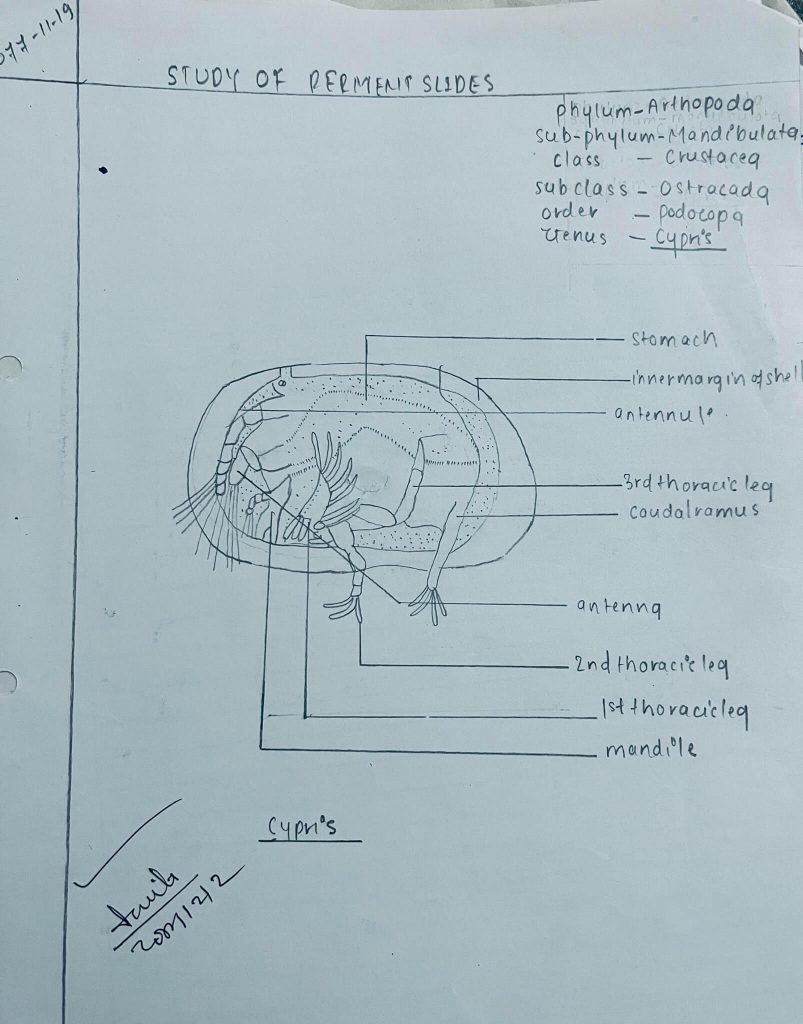 077-11-19
STUDY OF PERMENT SLIDES
phylum-Arthopoda
sub-phylum-Mandibulata
class - Crustacea
subclass - Ostracada
order - podocopa
Genus - Cypris
stomach
inner margin of shell
antennule
3rd thoracic leg
caudal ramus
antenna
2nd thoracic leg
1st thoracic leg
mandile
Cypris